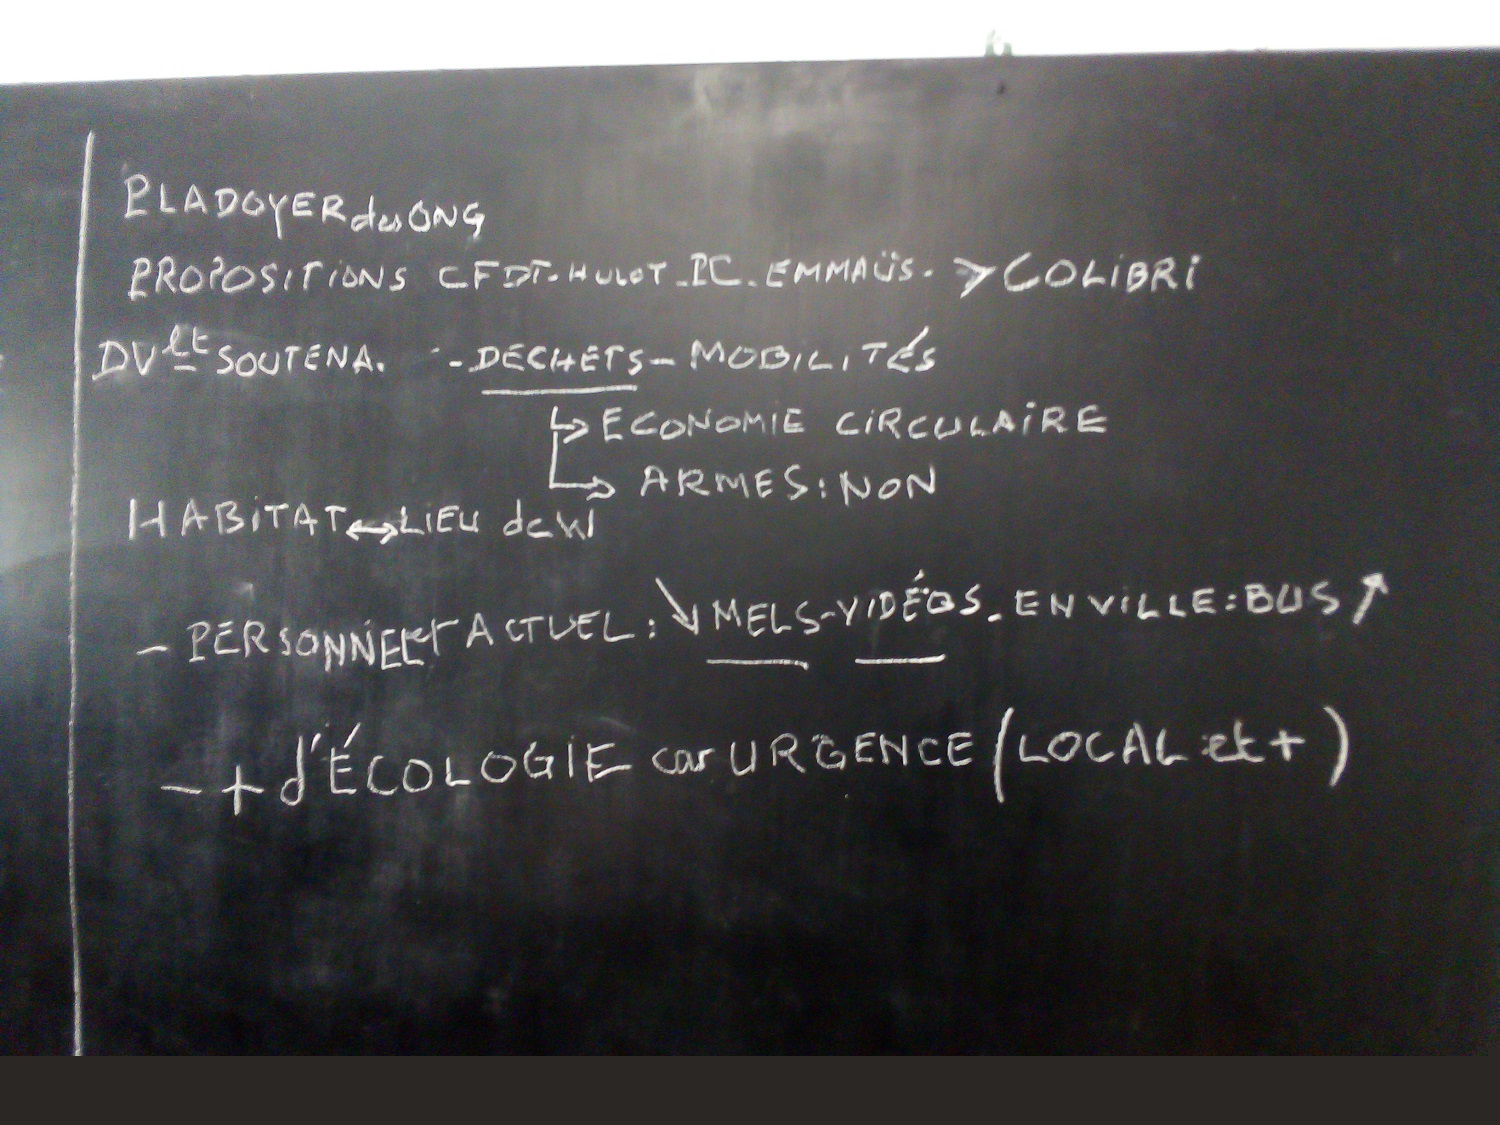 PLADOYER des ONG
PROPOSITIONS CFDT-HULOT-PC-EMMAÜS- > COLIBRI
DVlt SOUTENA. - DECHETS - MOBILITÉS
↳ ECONOMIE CIRCULAIRE
↳ ARMES : NON
HABITAT ↔ LIEU de W
- PERSONNEL et ACTUEL : ↘ MELS-VIDÉOS - EN VILLE : BUS ↗
- + d'ÉCOLOGIE car URGENCE (LOCAL et +)